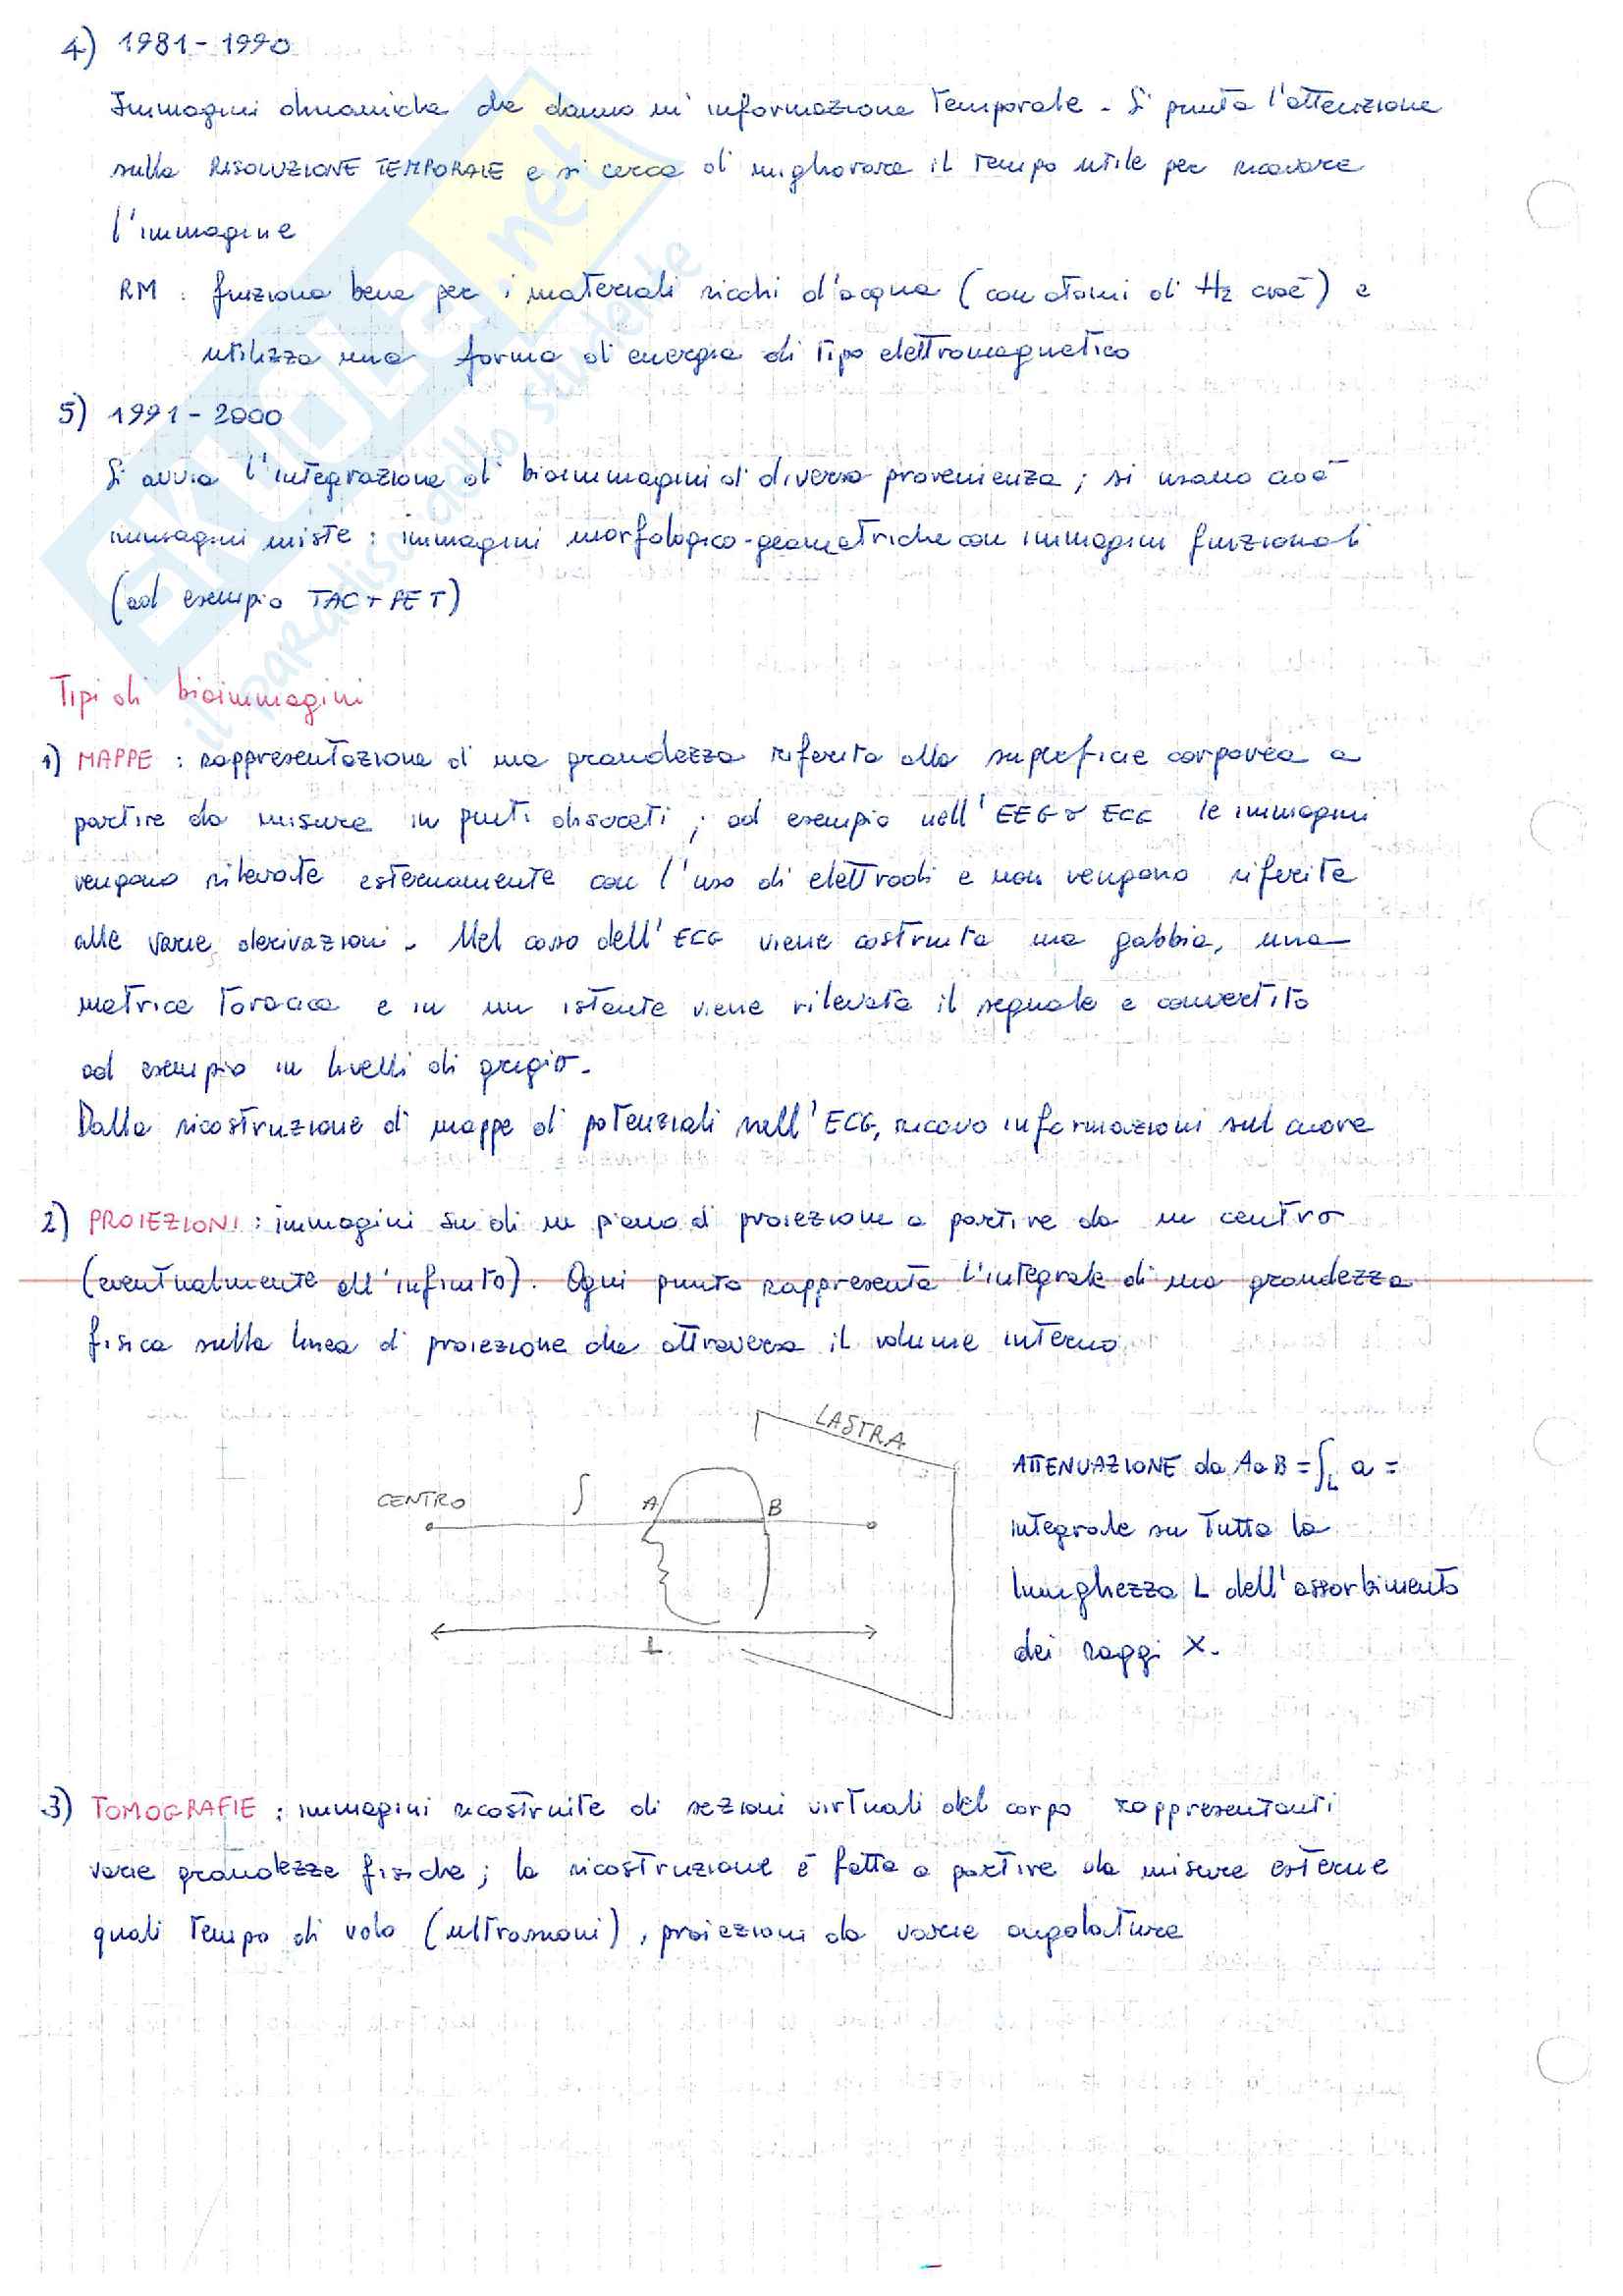 4) 1981 - 1990
Immagini dinamiche che danno un'informazione temporale - Si punta l'attenzione
sulla RISOLUZIONE TEMPORALE e si cerca di migliorare il tempo utile per ricavare
l'immagine
RM : funziona bene per i materiali ricchi d'acqua (con atomi di H2 cioè) e
utilizza una forma di energia di tipo elettromagnetico
5) 1991 - 2000
Si avvia l'integrazione di bioimmagini di diversa provenienza ; si usano cioè
immagini miste : immagini morfologico-geometriche con immagini funzionali
(ad esempio TAC + PET)
Tipi di bioimmagini
1) MAPPE : rappresentazione di una grandezza riferita alla superficie corporea a
partire da misure in punti discreti ; ad esempio nell'EEG o ECG le immagini
vengono rilevate esternamente con l'uso di elettrodi e non vengono riferite
alle varie derivazioni. Nel caso dell'ECG viene costruita una gabbia, una
matrice toracica e in un istante viene rilevato il segnale e convertito
ad esempio in livelli di grigio.
Dalla ricostruzione di mappe di potenziali nell'ECG, ricavo informazioni sul cuore
2) PROIEZIONI : immagini su di un piano di proiezione a partire da un centro
(eventualmente all'infinito). Ogni punto rappresenta l'integrale di una grandezza
fisica sulla linea di proiezione che attraversa il volume interno
LASTRA
CENTRO ∫ A B
L
ATTENUAZIONE da A a B = ∫L a =
integrale su tutta la
lunghezza L dell'assorbimento
dei raggi X.
3) TOMOGRAFIE : immagini ricostruite di sezioni virtuali del corpo rappresentanti
varie grandezze fisiche ; la ricostruzione è fatta a partire da misure esterne
quali tempo di volo (ultrasuoni), proiezioni da varie angolature
SKUOLA.net
il paradiso dello studente